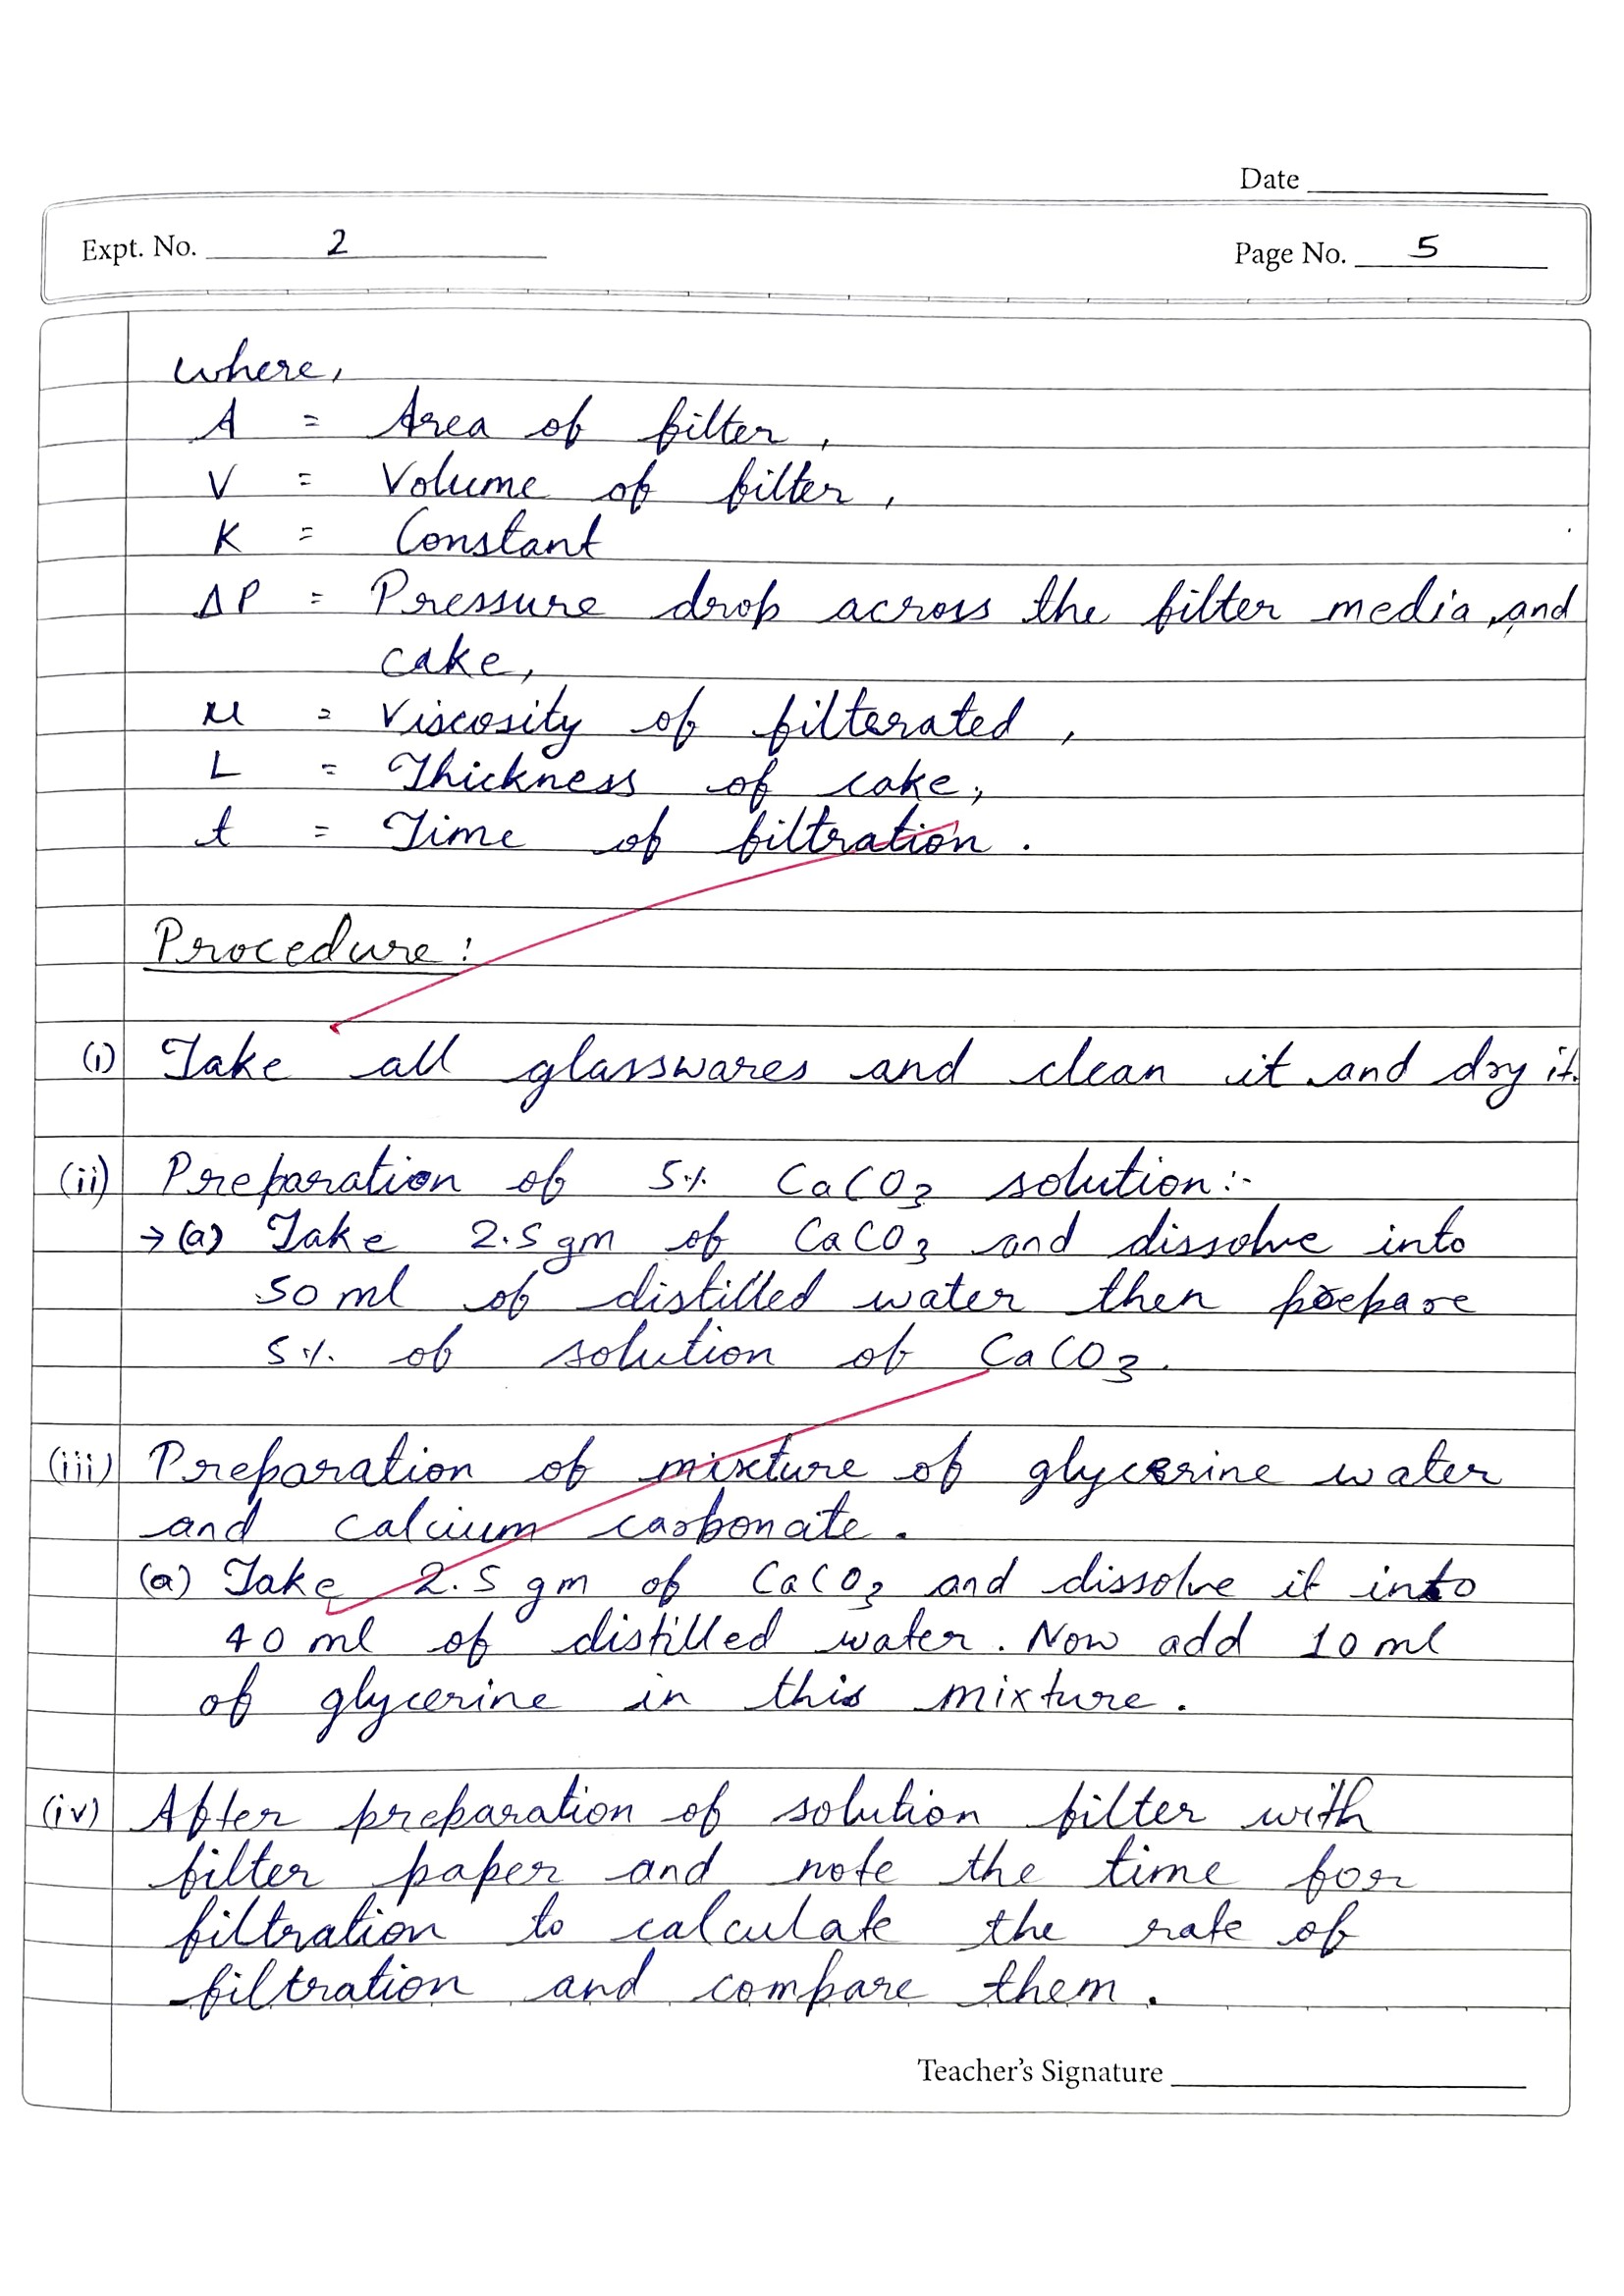 Date
Expt. No. 2
Page No. 5
where,
A = Area of filter,
V = Volume of filter,
K = Constant
ΔP = Pressure drop across the filter media, and
cake,
μ = Viscosity of filterated,
L = Thickness of cake,
t = Time of filtration.
Procedure:
(i) Take all glasswares and clean it and dry it.
(ii) Preparation of 5% CaCO₃ solution:-
→ (a) Take 2.5 gm of CaCO₃ and dissolve into
50 ml of distilled water then prepare
5% of solution of CaCO₃.
(iii) Preparation of mixture of glycerine water
and calcium carbonate.
(a) Take 2.5 gm of CaCO₃ and dissolve it into
40 ml of distilled water. Now add 10 ml
of glycerine in this mixture.
(iv) After preparation of solution filter with
filter paper and note the time for
filtration to calculate the rate of
filtration and compare them.
Teacher's Signature